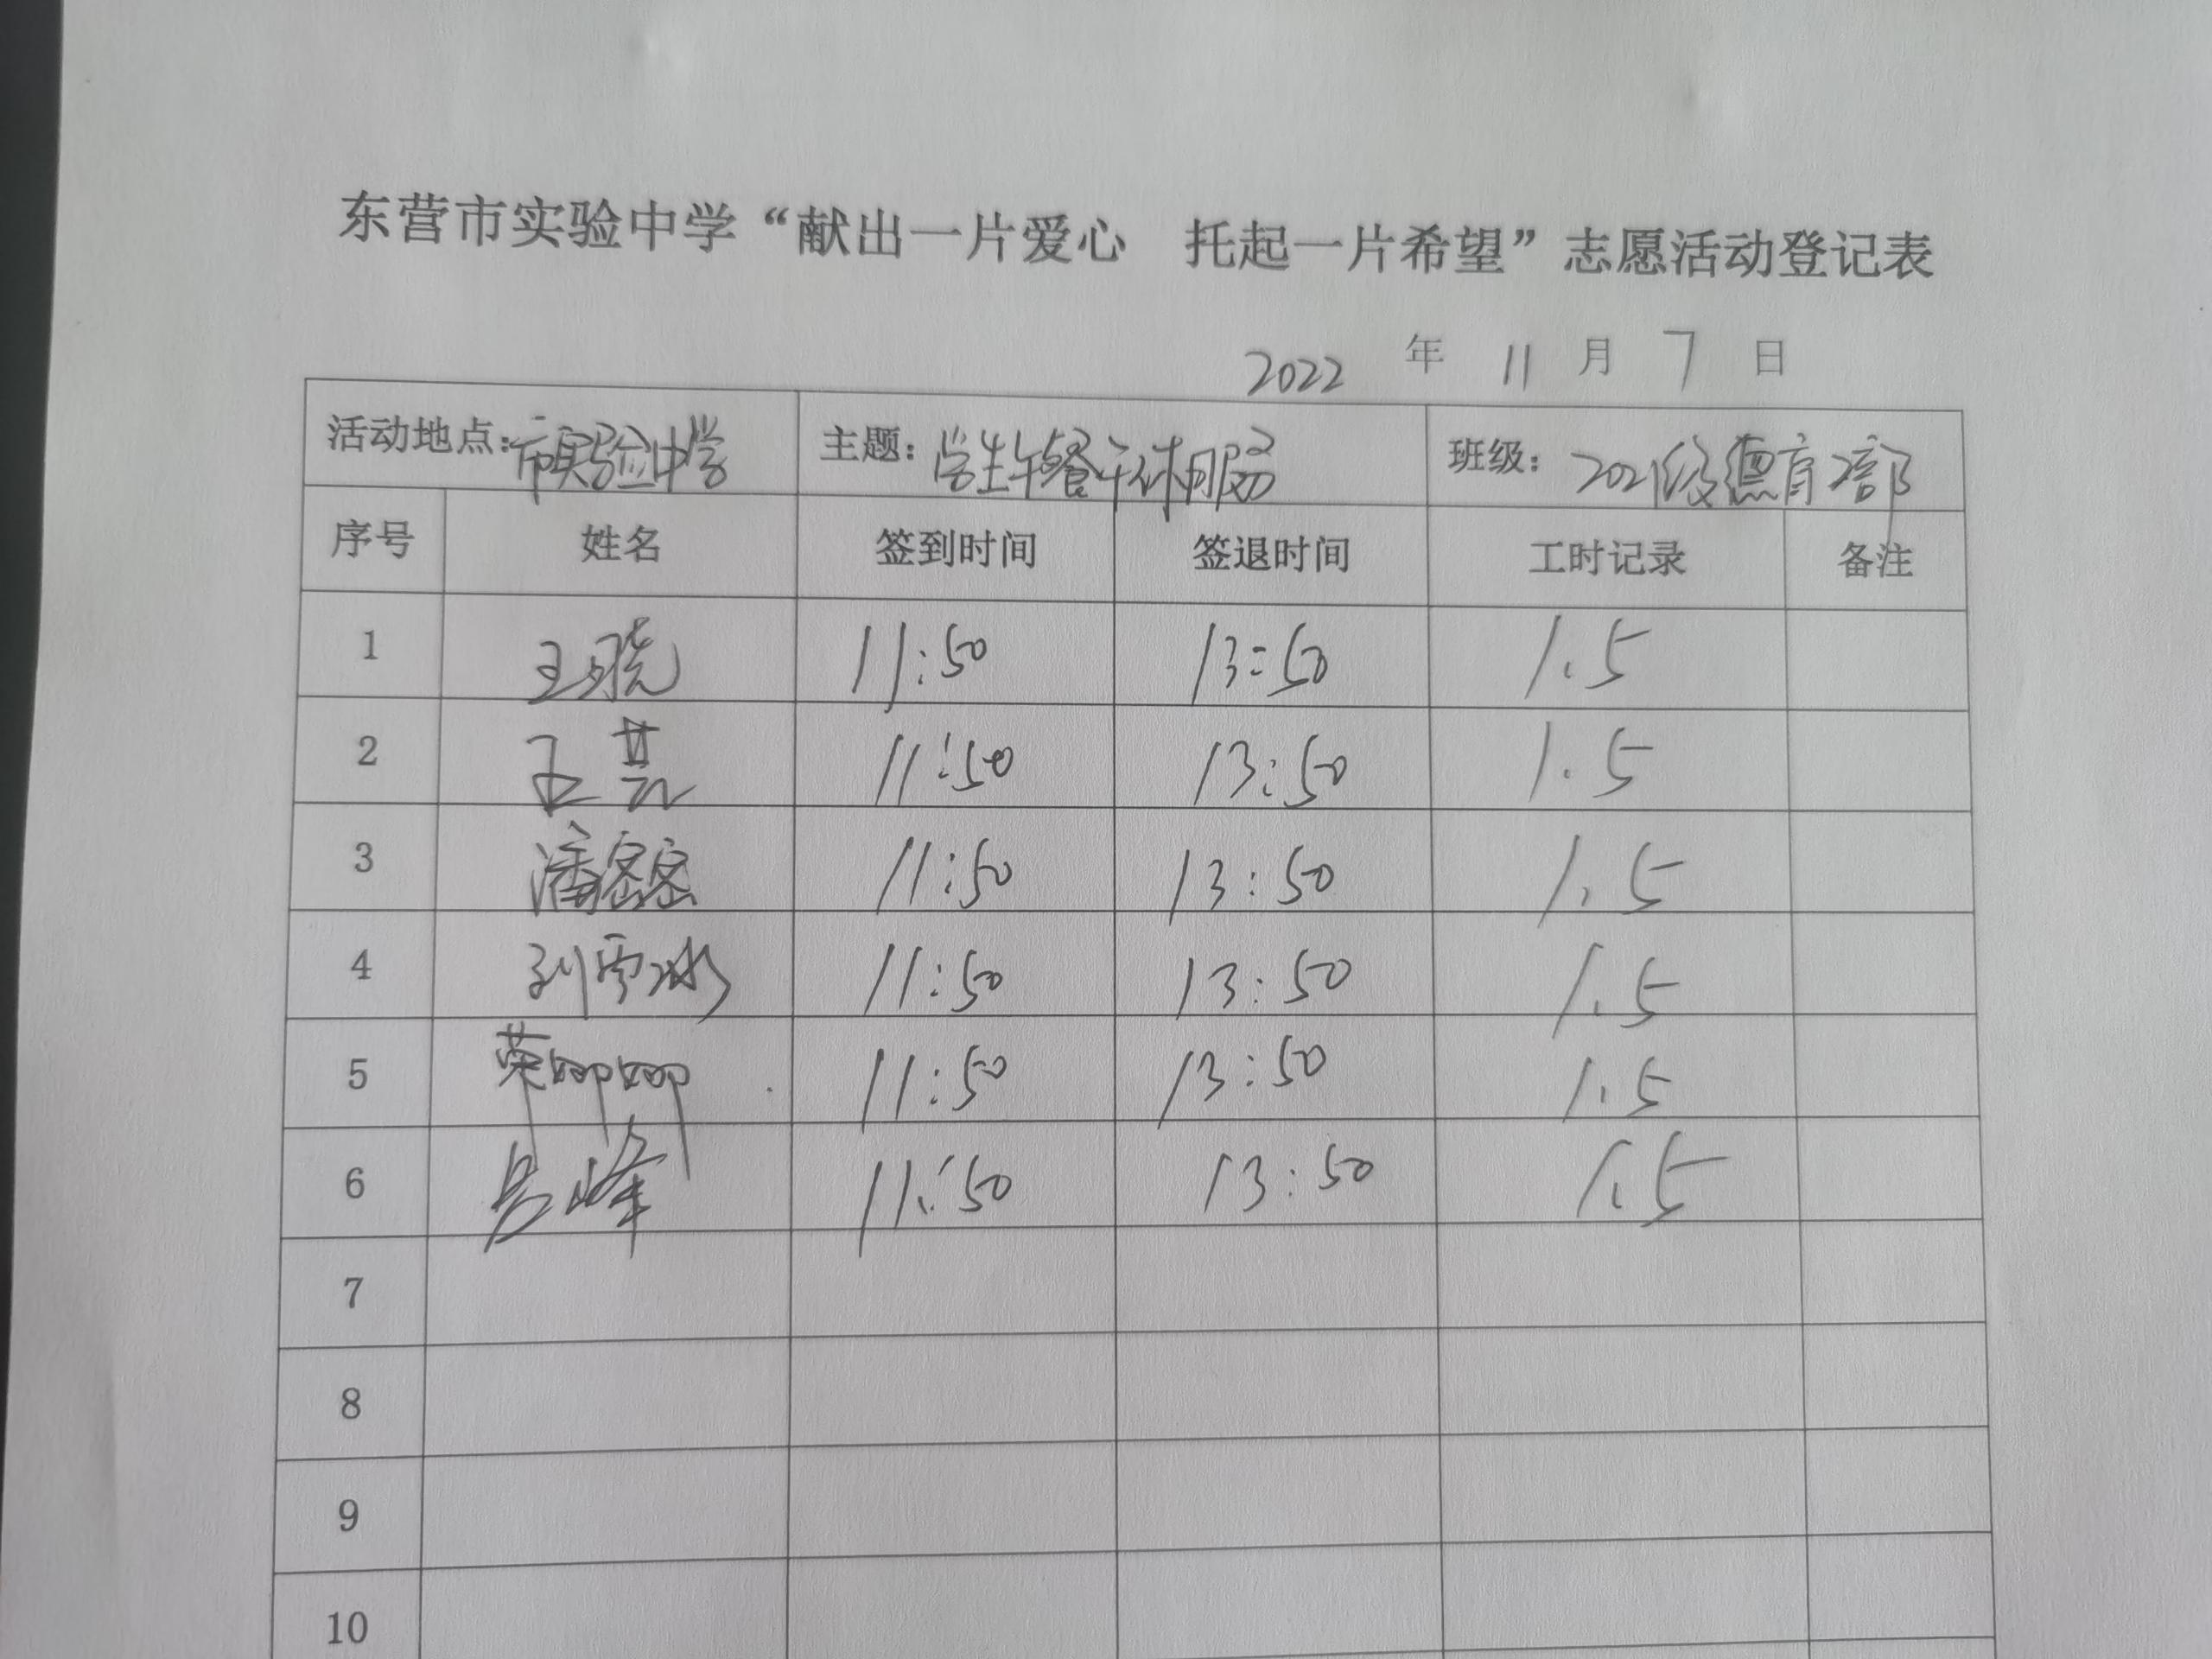 东营市实验中学“献出一片爱心 托起一片希望”志愿活动登记表
2022 年 11 月 7 日
活动地点：市实验中学 主题：学生午餐午休服务 班级：2021级德育2部
序号 姓名 签到时间 签退时间 工时记录 备注
1 王晓 11:50 13:50 1.5
2 王芸 11:50 13:50 1.5
3 潘密密 11:50 13:50 1.5
4 刘雪冰 11:50 13:50 1.5
5 荣 11:50 13:50 1.5
6 吕峰 11:50 13:50 1.5
7
8
9
10